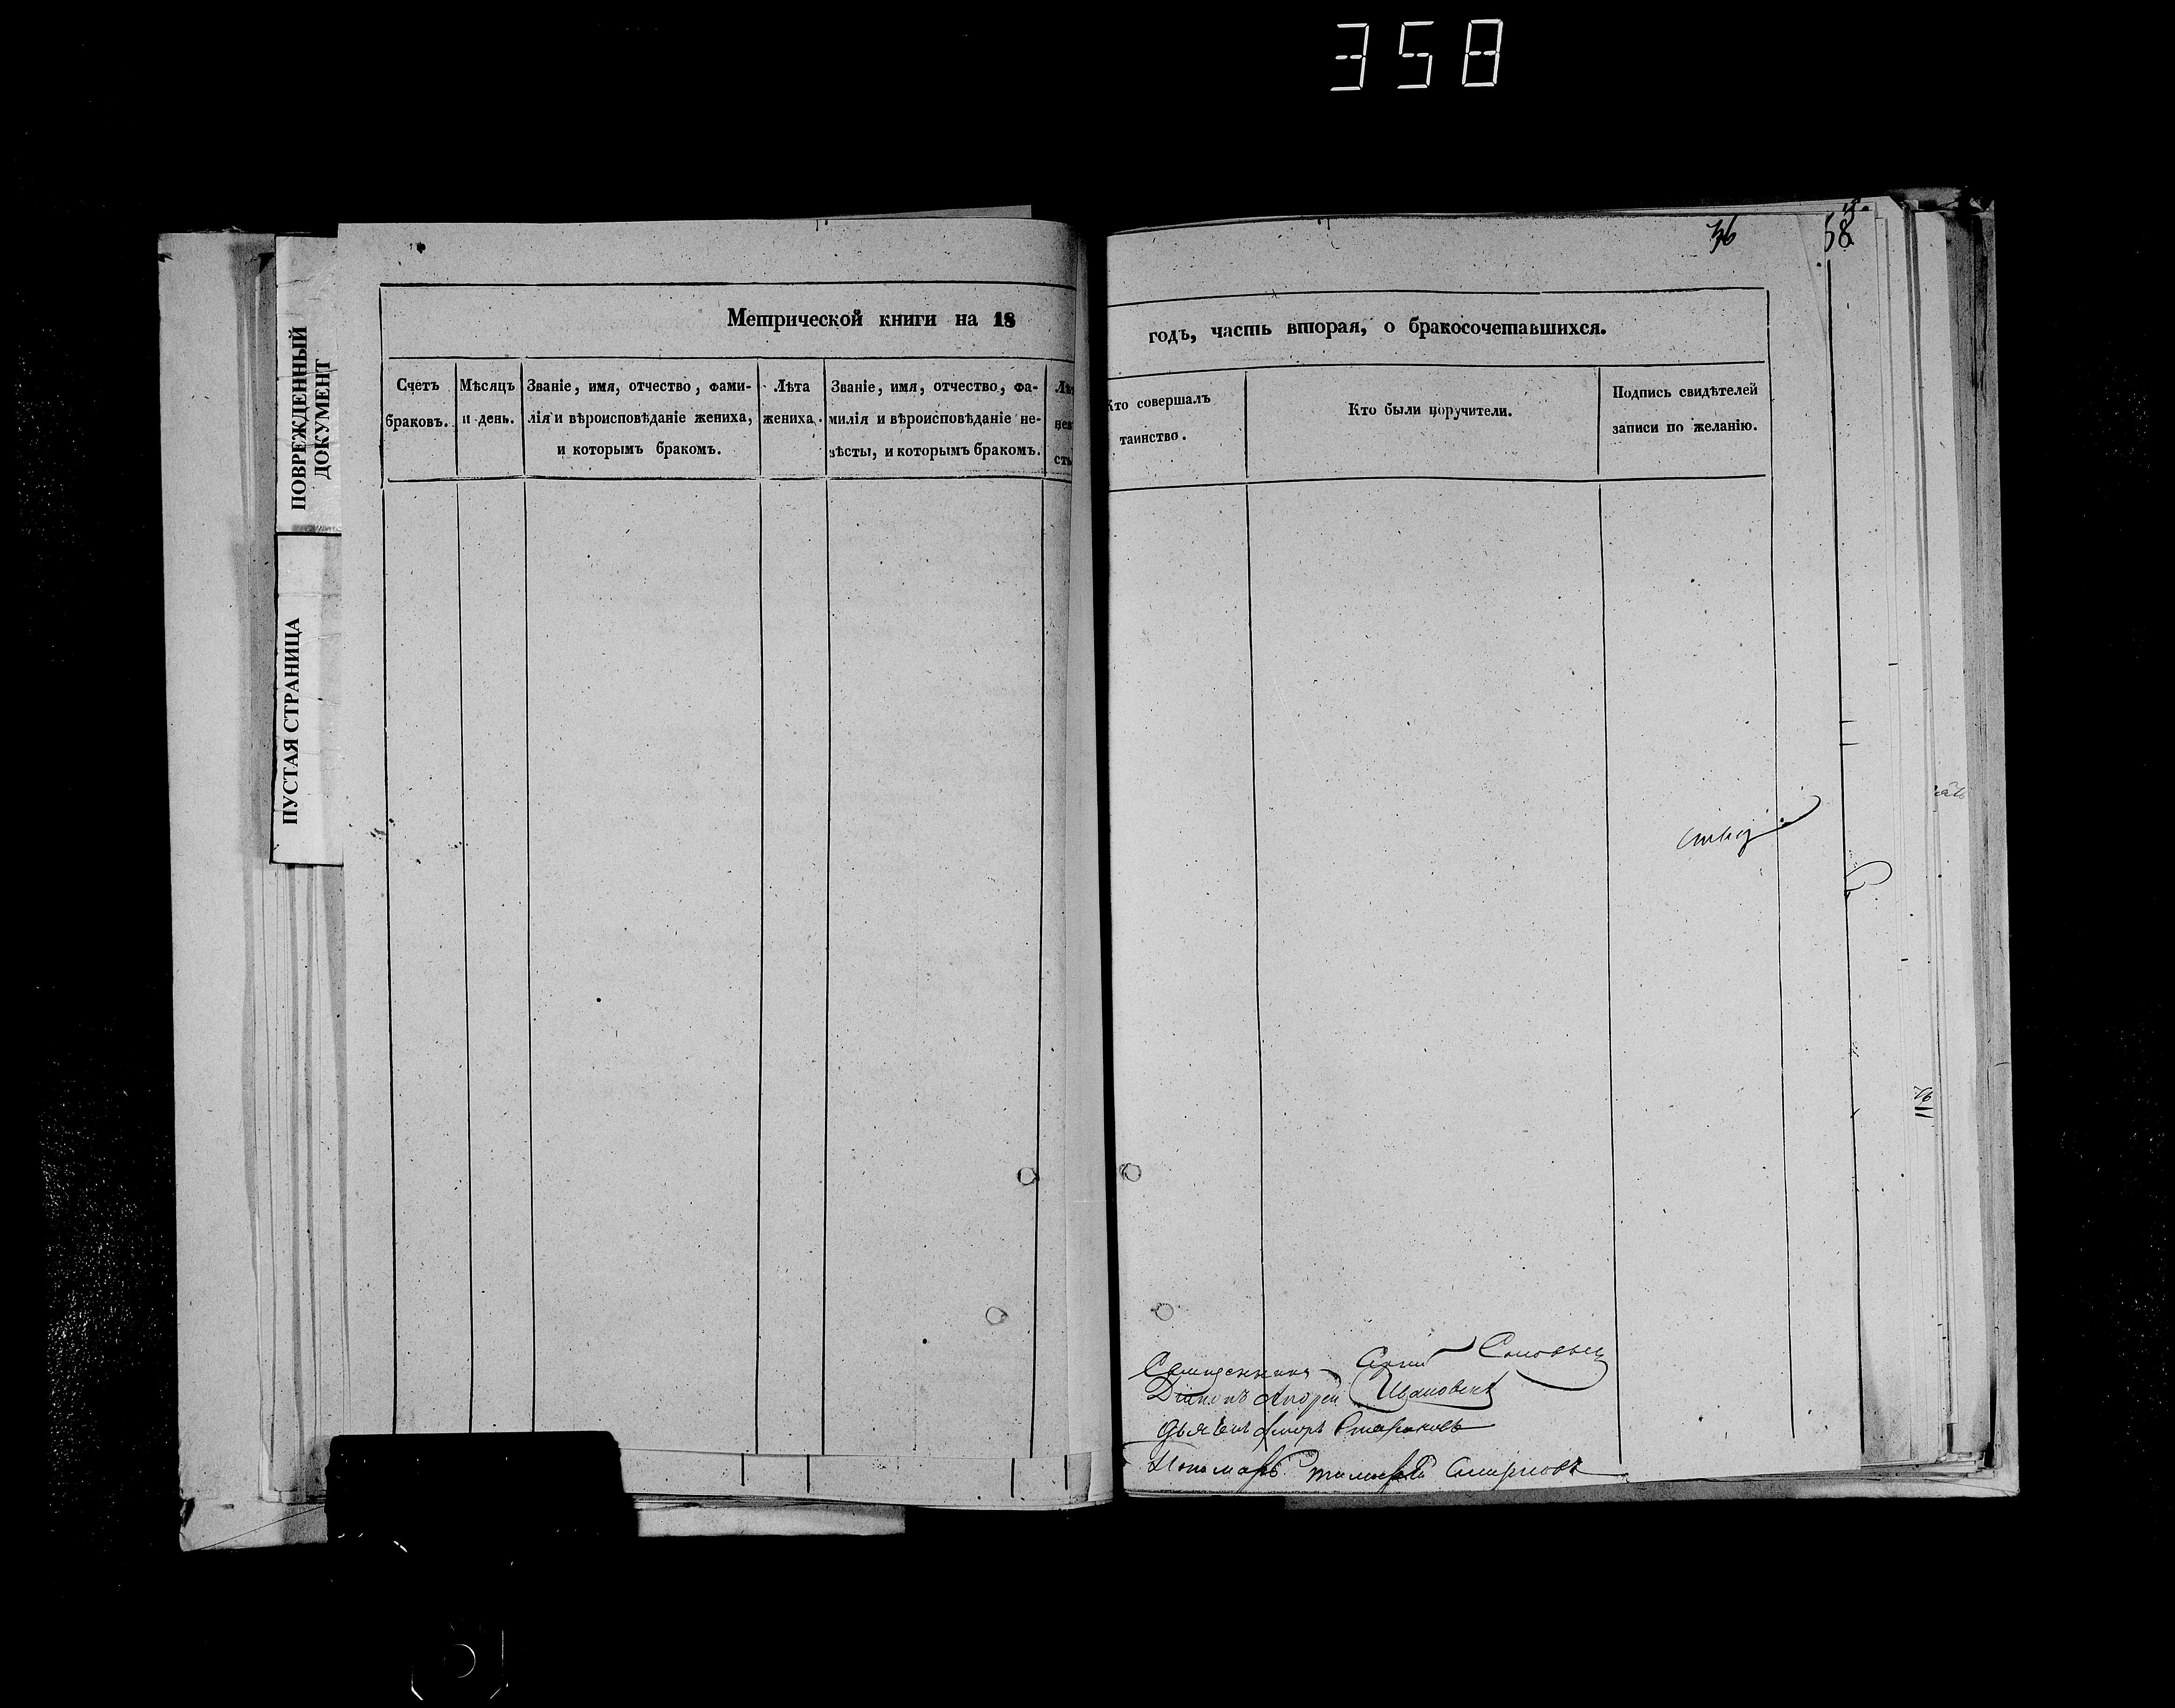 358
36
58
ПОВРЕЖДЕННЫЙ
ДОКУМЕНТ
ПУСТАЯ СТРАНИЦА
Метрической книги на 18
Счетъ
браковъ.
Мѣсяцъ
и день.
Званіе, имя, отчество, фами-
лія и вѣроисповѣданіе жениха,
и которымъ бракомъ.
Лѣта
жениха.
Званіе, имя, отчество, фа-
милія и вѣроисповѣданіе не-
вѣсты, и которымъ бракомъ.
Лѣт
нев
сты
годъ, часть вторая, о бракосочетавшихся.
Кто совершалъ
таинство.
Кто были поручители.
Подпись свидѣтелей
записи по желанію.
Священникъ Сергій Соловьев
Діаконъ Андрей Ивановскій
Пономарь Тимофей Смирновъ